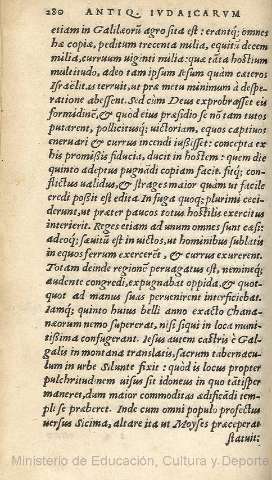 280 ANTIQ. IVDAICARVM
etiam in Galilæorũ agro sita est: erantq́; omnes
hæ copiæ, peditum trecenta milia, equitũ decem
milia, curruum viginti milia: quæ tãta hostium
multitudo, adeo tam ipsum Iesum quàm cæteros
Israëlitas terruit, ut præ metu minimum à despe-
ratione abessent. Sed cùm Deus exprobrasset eis
formidinẽ, & quòd eius præsidio se nõ tam tutos
putarent, pollicitusq́; uictoriam, equos captiuos
eneruari & currus incendi iußisset: concepta ex
his promißis fiducia, ducit in hostem: quem die
quinto adeptus pugnãdi copiam facit. fitq́; con-
flictus ualidus, & strages maior quàm ut facile
credi poßit est edita. In fuga quoq; plurimi ceci-
derunt, ut præter paucos totus hostilis exercitus
interierit. Reges etiam ad unum omnes sunt cæsi:
adeoq́; sæuitũ est in uictos, ut hominibus sublatis
in equos ferrum exercerẽt, & currus exurerent.
Totam deinde regionẽ peruagatus est, nemineq́;
audente congredi, expugnabat oppida, & quot-
quot ad manus suas peruenirent interficiebat.
Iamq́; quinto huius belli anno exacto Chana-
næorum nemo supererat, nisi siqui in loca muni-
tißima confugerant. Iesus autem castris è Gal-
galis in montana translatis, sacrum tabernacu-
lum in urbe Silunte fixit: quòd is locus propter
pulchritudinem uisus sit idoneus in quo tãtisper
maneret, dum maior commoditas ædificãdi tem-
pli se præberet. Inde cum omni populo profectus
uersus Sicima, altare ita ut Moyses præceperat
statuit:
Ministerio de Educación, Cultura y Deporte